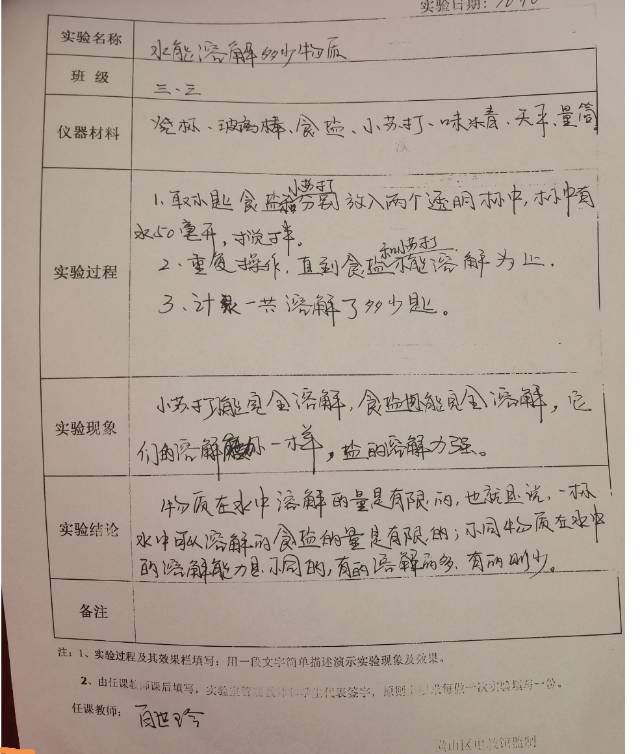 实验日期：
实验名称 水能溶解多少物质
班 级 三、三
仪器材料 烧杯、玻璃棒、食盐、小苏打、味精、天平、量筒
实验过程
小苏打
1.取小匙食盐和分别放入两个透明杯中,杯中有
水50毫升,搅拌。
和小苏打
2.重复操作,直到食盐不能溶解为止.
3、计录一共溶解了多少匙。
实验现象
小苏打能完全溶解,食盐也能完全溶解,它
们的溶解不一样,盐的溶解力强。
实验结论
物质在水中溶解的量是有限的,也就是说,一杯
水中可以溶解的食盐的量是有限的;不同物质在水中
的溶解能力是不同的,有的溶解的多.有的则少。
备注
注:1、实验过程及其效果栏填写:用一段文字简单描述演示实验现象及效果。
2、由任课教师课后填写,实验室管理教师和学生代表签字,原则上要求每做一次实验填写一份。
任课教师: